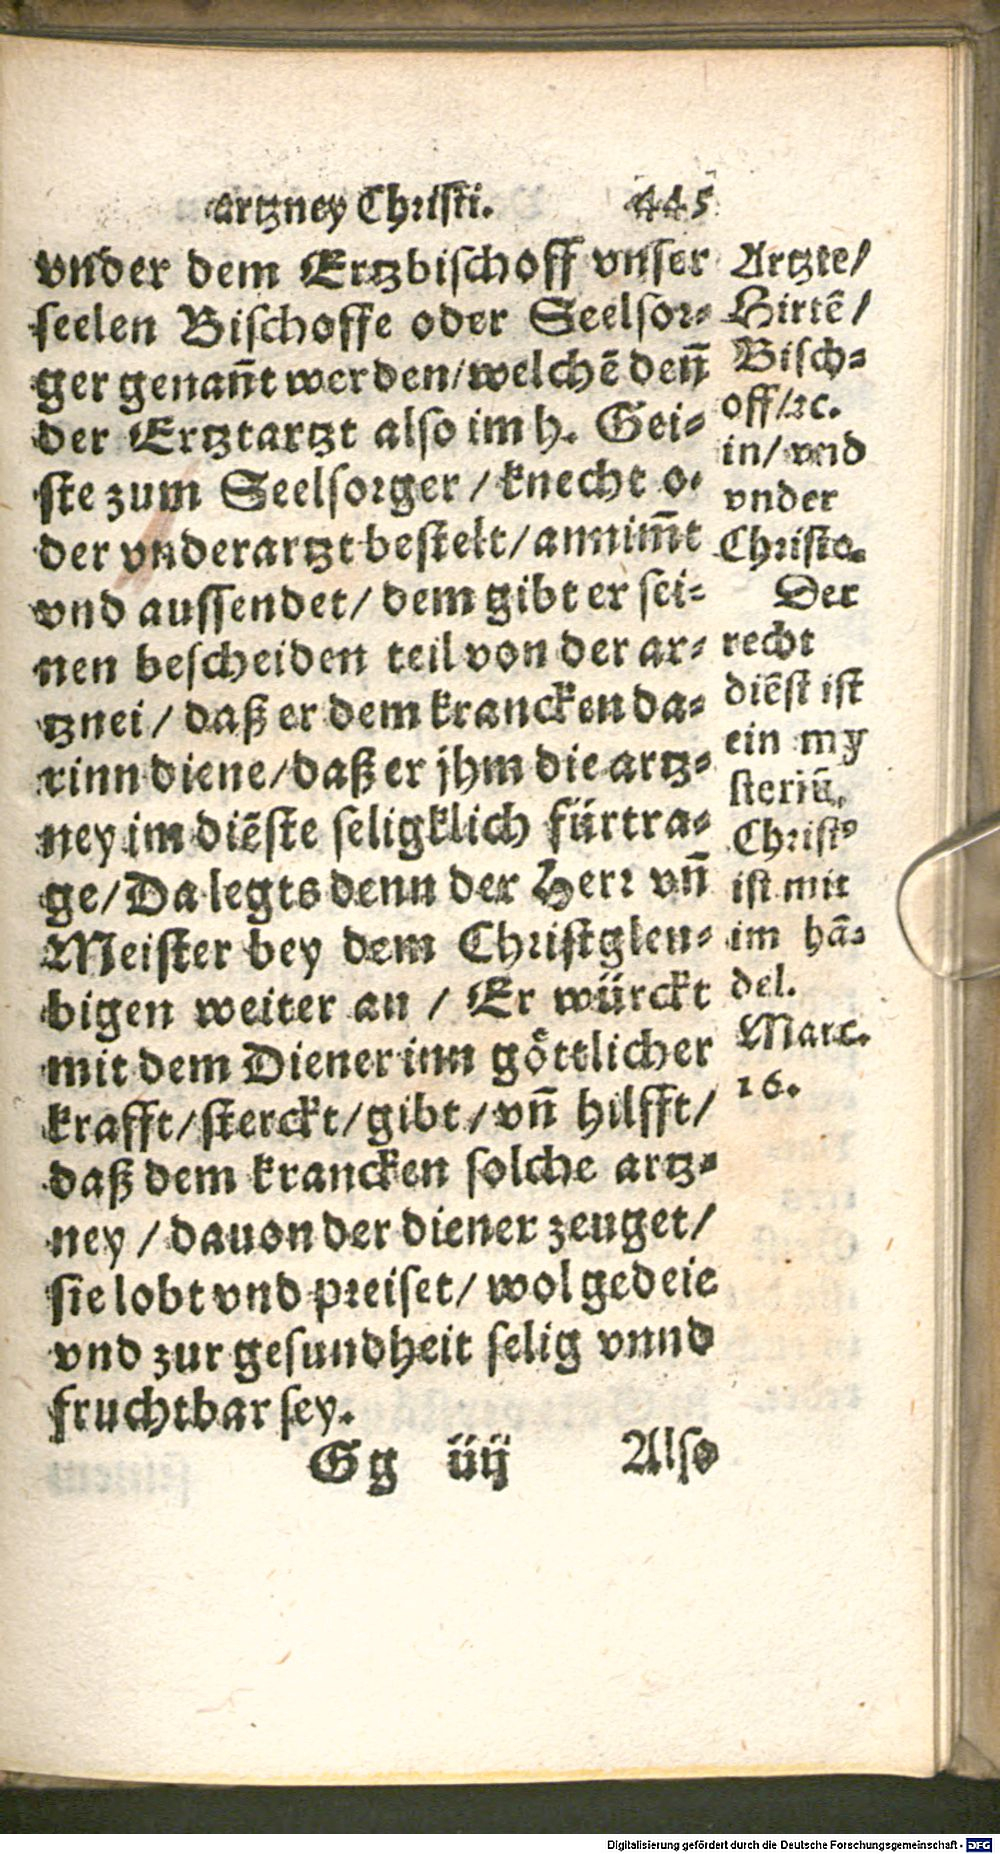 artzney Christi. 445
vnder dem Ertzbischoff vnser
seelen Bischoffe oder Seelsor-
ger genañt werden/welchē deñ
der Ertztartzt also im h. Gei-
ste zum Seelsorger / knecht o-
der vnderartzt bestelt/annim̃t
vnd aussendet/ dem gibt er sei-
nen bescheiden teil von der ar-
tznei / daß er dem krancken da-
rinn diene/daß er jhm die artz-
ney im diēste seligklich fürtra-
ge/Da legts denn der Herr vñ
Meister bey dem Christglen-
bigen weiter an / Er würckt
mit dem Diener inn göttlicher
krafft/sterckt/gibt/vñ hilfft/
daß dem krancken solche artz-
ney / dauon der diener zeuget/
sie lobt vnd preiset/ wol gedeie
vnd zur gesundheit selig vnnd
fruchtbar sey.
Gg iiij Also
Artzte/
Hirtē /
Bisch-
off/ꝛc.
in/ vnd
vnder
Christo.
Der
recht
diēst ist
ein my
steriū,
Christꝰ
ist mit
im hā-
del.
Marc.
16.
Digitalisierung gefördert durch die Deutsche Forschungsgemeinschaft - DFG